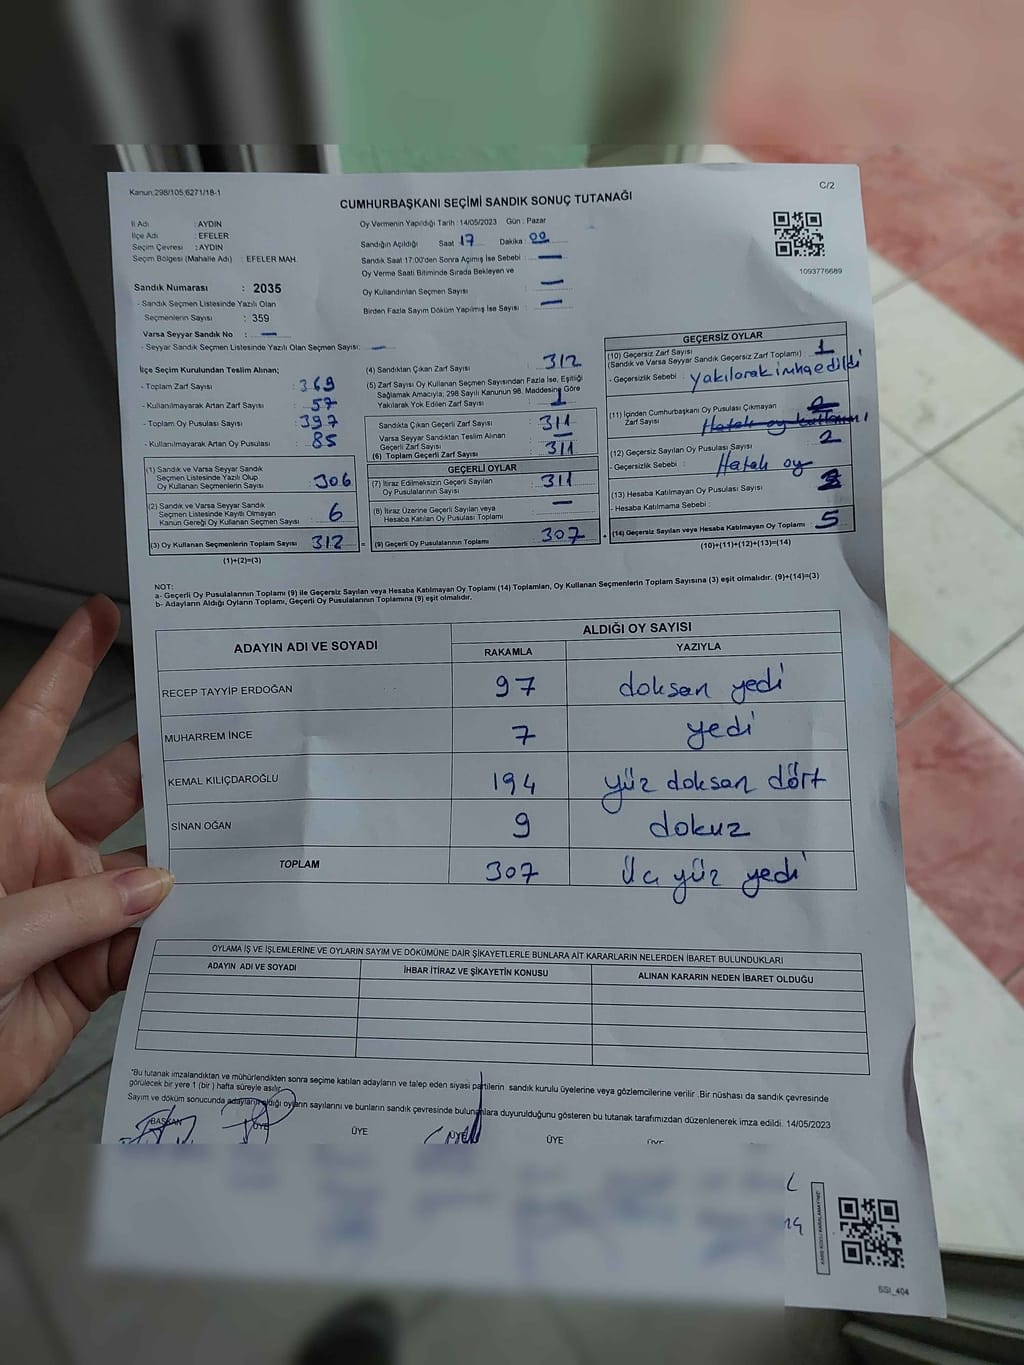 Kanun:298/105;6271/18-1
C/2
CUMHURBAŞKANI SEÇİMİ SANDIK SONUÇ TUTANAĞI
İl Adı : AYDIN
İlçe Adı : EFELER
Seçim Çevresi : AYDIN
Seçim Bölgesi (Mahalle Adı) : EFELER MAH.
Oy Vermenin Yapıldığı Tarih : 14/05/2023 Gün : Pazar
Sandığın Açıldığı Saat 17 Dakika : 00
Sandık Saat 17:00'den Sonra Açımış İse Sebebi : —
Oy Verme Saati Bitiminde Sırada Bekleyen ve
Oy Kullandırılan Seçmen Sayısı : —
Birden Fazla Sayım Döküm Yapılmış İse Sayısı : —
1093776689
Sandık Numarası : 2035
- Sandık Seçmen Listesinde Yazılı Olan
Seçmenlerin Sayısı : 359
Varsa Seyyar Sandık No : —
- Seyyar Sandık Seçmen Listesinde Yazılı Olan Seçmen Sayısı: —
İlçe Seçim Kurulundan Teslim Alınan;
- Toplam Zarf Sayısı : 369
- Kullanılmayarak Artan Zarf Sayısı : 57
- Toplam Oy Pusulası Sayısı : 397
- Kullanılmayarak Artan Oy Pusulası : 85
(1) Sandık ve Varsa Seyyar Sandık
Seçmen Listesinde Yazılı Olup
Oy Kullanan Seçmenlerin Sayısı : 306
(2) Sandık ve Varsa Seyyar Sandık
Seçmen Listesinde Kayıtlı Olmayan
Kanun Gereği Oy Kullanan Seçmen Sayısı : 6
(3) Oy Kullanan Seçmenlerin Toplam Sayısı : 312
(1)+(2)=(3)
(4) Sandıktan Çıkan Zarf Sayısı : 312
(5) Zarf Sayısı Oy Kullanan Seçmen Sayısından Fazla İse, Eşitliği
Sağlamak Amacıyla; 298 Sayılı Kanunun 98. Maddesine Göre
Yakılarak Yok Edilen Zarf Sayısı : 1
Sandıkta Çıkan Geçerli Zarf Sayısı : 311
Varsa Seyyar Sandıktan Teslim Alınan
Geçerli Zarf Sayısı : —
(6) Toplam Geçerli Zarf Sayısı : 311
GEÇERLİ OYLAR
(7) İtiraz Edilmeksizin Geçerli Sayılan
Oy Pusulalarının Sayısı : 311
(8) İtiraz Üzerine Geçerli Sayılan veya
Hesaba Katılan Oy Pusulası Toplamı : —
(9) Geçerli Oy Pusulalarının Toplamı : 307
GEÇERSİZ OYLAR
(10) Geçersiz Zarf Sayısı
(Sandık ve Varsa Seyyar Sandık Geçersiz Zarf Toplamı) : 1
- Geçersizlik Sebebi : yakılarak imha edildi
(11) İçinden Cumhurbaşkanı Oy Pusulası Çıkmayan
Zarf Sayısı :
(12) Geçersiz Sayılan Oy Pusulası Sayısı : 2
- Geçersizlik Sebebi : Hatalı oy
(13) Hesaba Katılmayan Oy Pusulası Sayısı :
- Hesaba Katılmama Sebebi :
(14) Geçersiz Sayılan veya Hesaba Katılmayan Oy Toplamı : 5
(10)+(11)+(12)+(13)=(14)
NOT:
a- Geçerli Oy Pusulalarının Toplamı (9) ile Geçersiz Sayılan veya Hesaba Katılmayan Oy Toplamı (14) Toplamları, Oy Kullanan Seçmenlerin Toplam Sayısına (3) eşit olmalıdır. (9)+(14)=(3)
b- Adayların Aldığı Oyların Toplamı, Geçerli Oy Pusulalarının Toplamına (9) eşit olmalıdır.
ADAYIN ADI VE SOYADI
ALDIĞI OY SAYISI
RAKAMLA YAZIYLA
RECEP TAYYİP ERDOĞAN 97 doksan yedi
MUHARREM İNCE 7 yedi
KEMAL KILIÇDAROĞLU 194 yüz doksan dört
SİNAN OĞAN 9 dokuz
TOPLAM 307 Üç yüz yedi
OYLAMA İŞ VE İŞLEMLERİNE VE OYLARIN SAYIM VE DÖKÜMÜNE DAİR ŞİKAYETLERLE BUNLARA AİT KARARLARIN NELERDEN İBARET BULUNDUKLARI
ADAYIN ADI VE SOYADI İHBAR İTİRAZ VE ŞİKAYETİN KONUSU ALINAN KARARIN NEDEN İBARET OLDUĞU
*Bu tutanak imzalandıktan ve mühürlendikten sonra seçime katılan adayların ve talep eden siyasi partilerin sandık kurulu üyelerine veya gözlemcilerine verilir .Bir nüshası da sandık çevresinde
görülecek bir yere 1 (bir ) hafta süreyle asılır.
Sayım ve döküm sonucunda adayların aldığı oyların sayılarını ve bunların sandık çevresinde bulunanlara duyurulduğunu gösteren bu tutanak tarafımızdan düzenlenerek imza edildi. 14/05/2023
BAŞKAN ÜYE ÜYE ÜYE ÜYE ÜYE
SSI_404